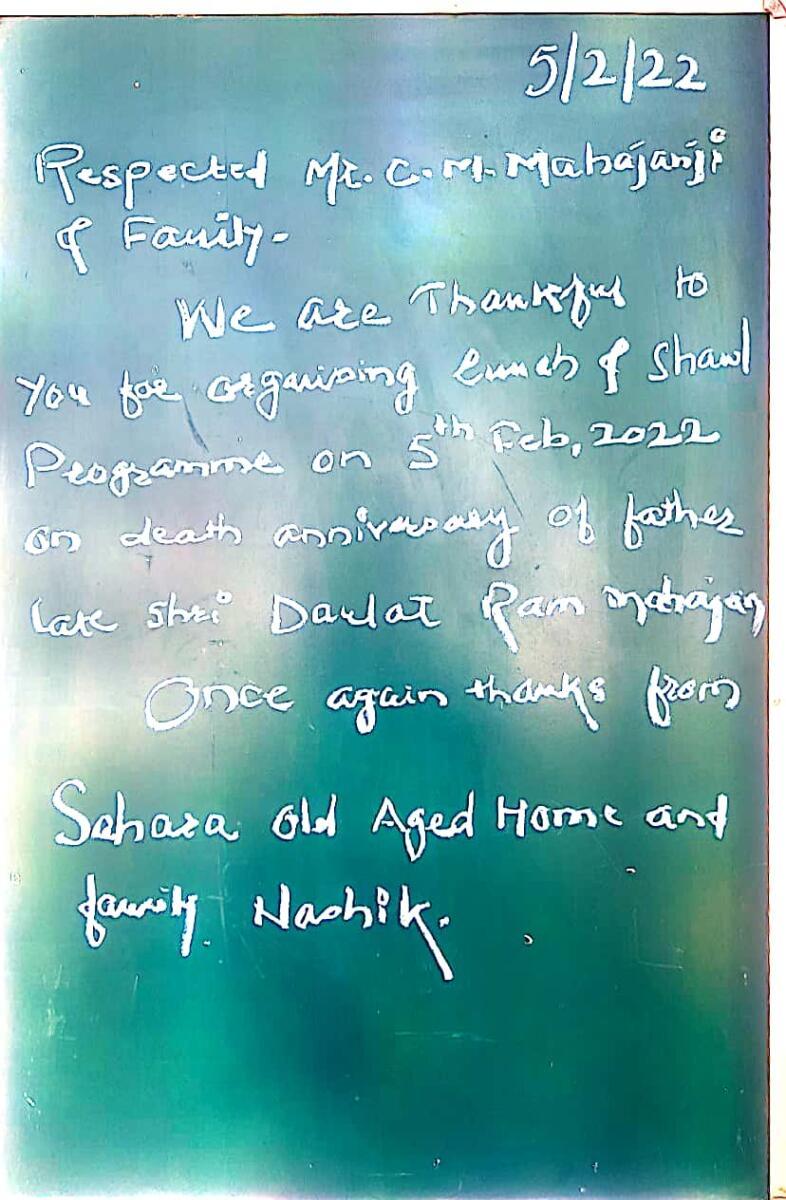 5/2/22
Respected Mr. C. M. Mahajanji
& Family-
We are Thankful to
You for organising lunch & shawl
Programme on 5th Feb, 2022
on death anniversary of father
late shri Daulat Ram Mahajan
Once again thanks from
Sahara Old Aged Home and
family Nashik.